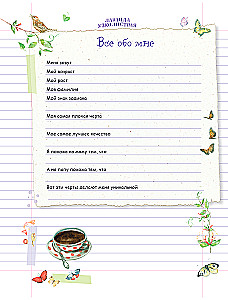 Все обо мне
Меня зовут
Мой возраст
Мой рост
Моя фамилия
Мой знак зодиака
Моя самая плохая черта
Мое самое лучшее качество
Я похожа на маму тем, что
А на папу похожа тем, что
Вот эти черты делают меня уникальной